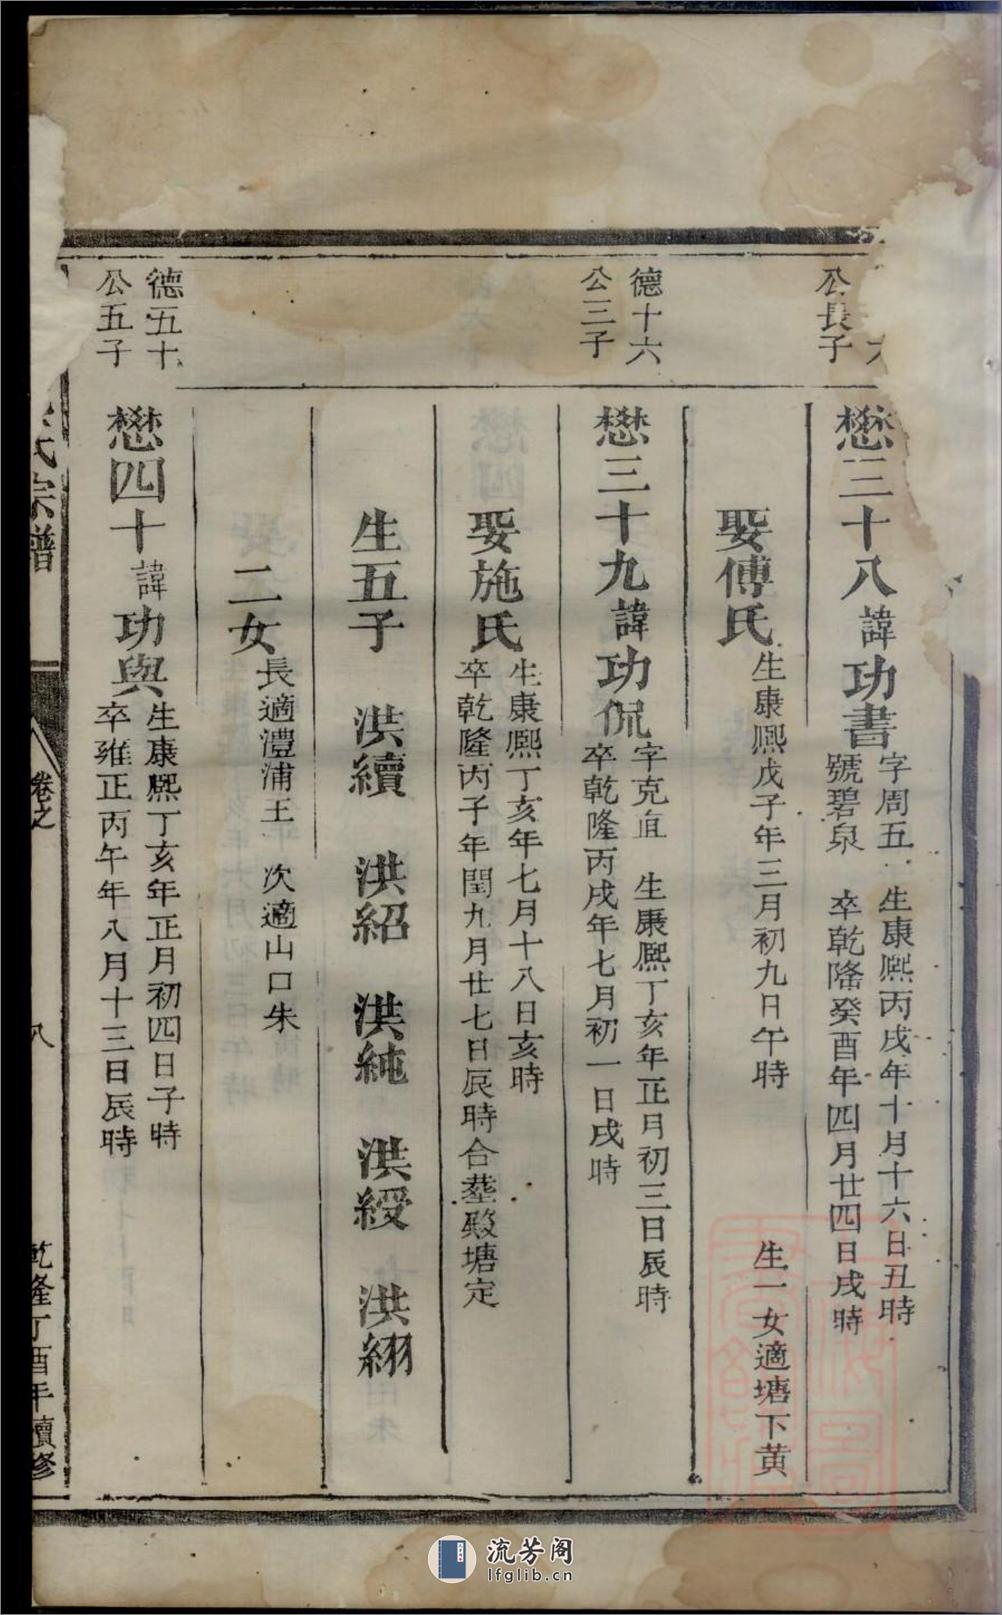 公長子
懋三十八諱功書
字周五　生康熙丙戌年十月十六日丑時
號碧泉　卒乾隆癸酉年四月廿四日戌時
娶傅氏
生康熙戊子年三月初九日午時
生一女適塘下黃
德十六
公三子
懋三十九諱功侃
字克直　生康熙丁亥年正月初三日辰時
卒乾隆丙戌年七月初一日戌時
娶施氏
生康熙丁亥年七月十八日亥時
卒乾隆丙子年閏九月廿七日辰時合塟殿塘定
生五子　洪續　洪紹　洪純　洪綬　洪䎖
二女
長適澧浦王　次適山口朱
德五十
公五子
懋四十諱功與
生康熙丁亥年正月初四日子時
卒雍正丙午年八月十三日辰時
氏宗譜
卷之
八
乾隆丁酉年續修
流芳阁
lfglib.cn